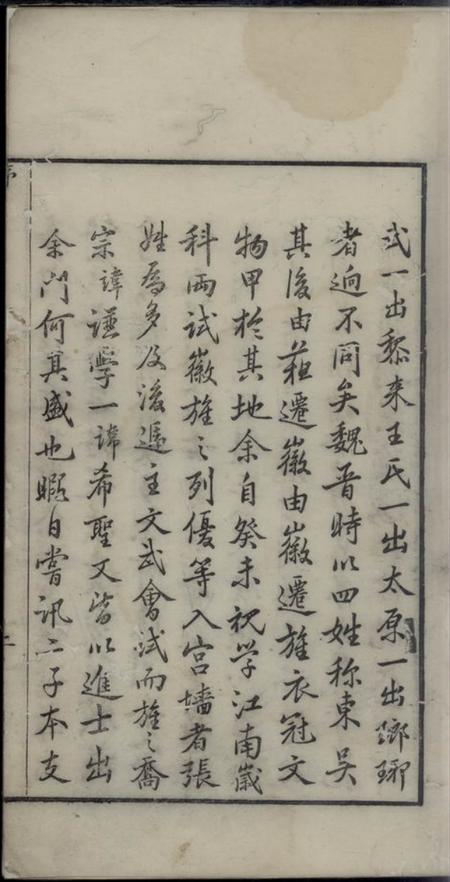 武一出黎来王氏一出太原一出瑯琊
者逈不同矣魏晋時以四姓称東吴
其後由蘓遷徽由徽遷旌衣冠文
物甲於其地余自癸未視学江南歲
科両試徽旌之列優等入宫墻者張
姓為多及後逓主文武會試而旌之喬
宗諱谨學一諱希聖又皆以進士出
余門何其盛也暇日嘗訊二子本支
序
二